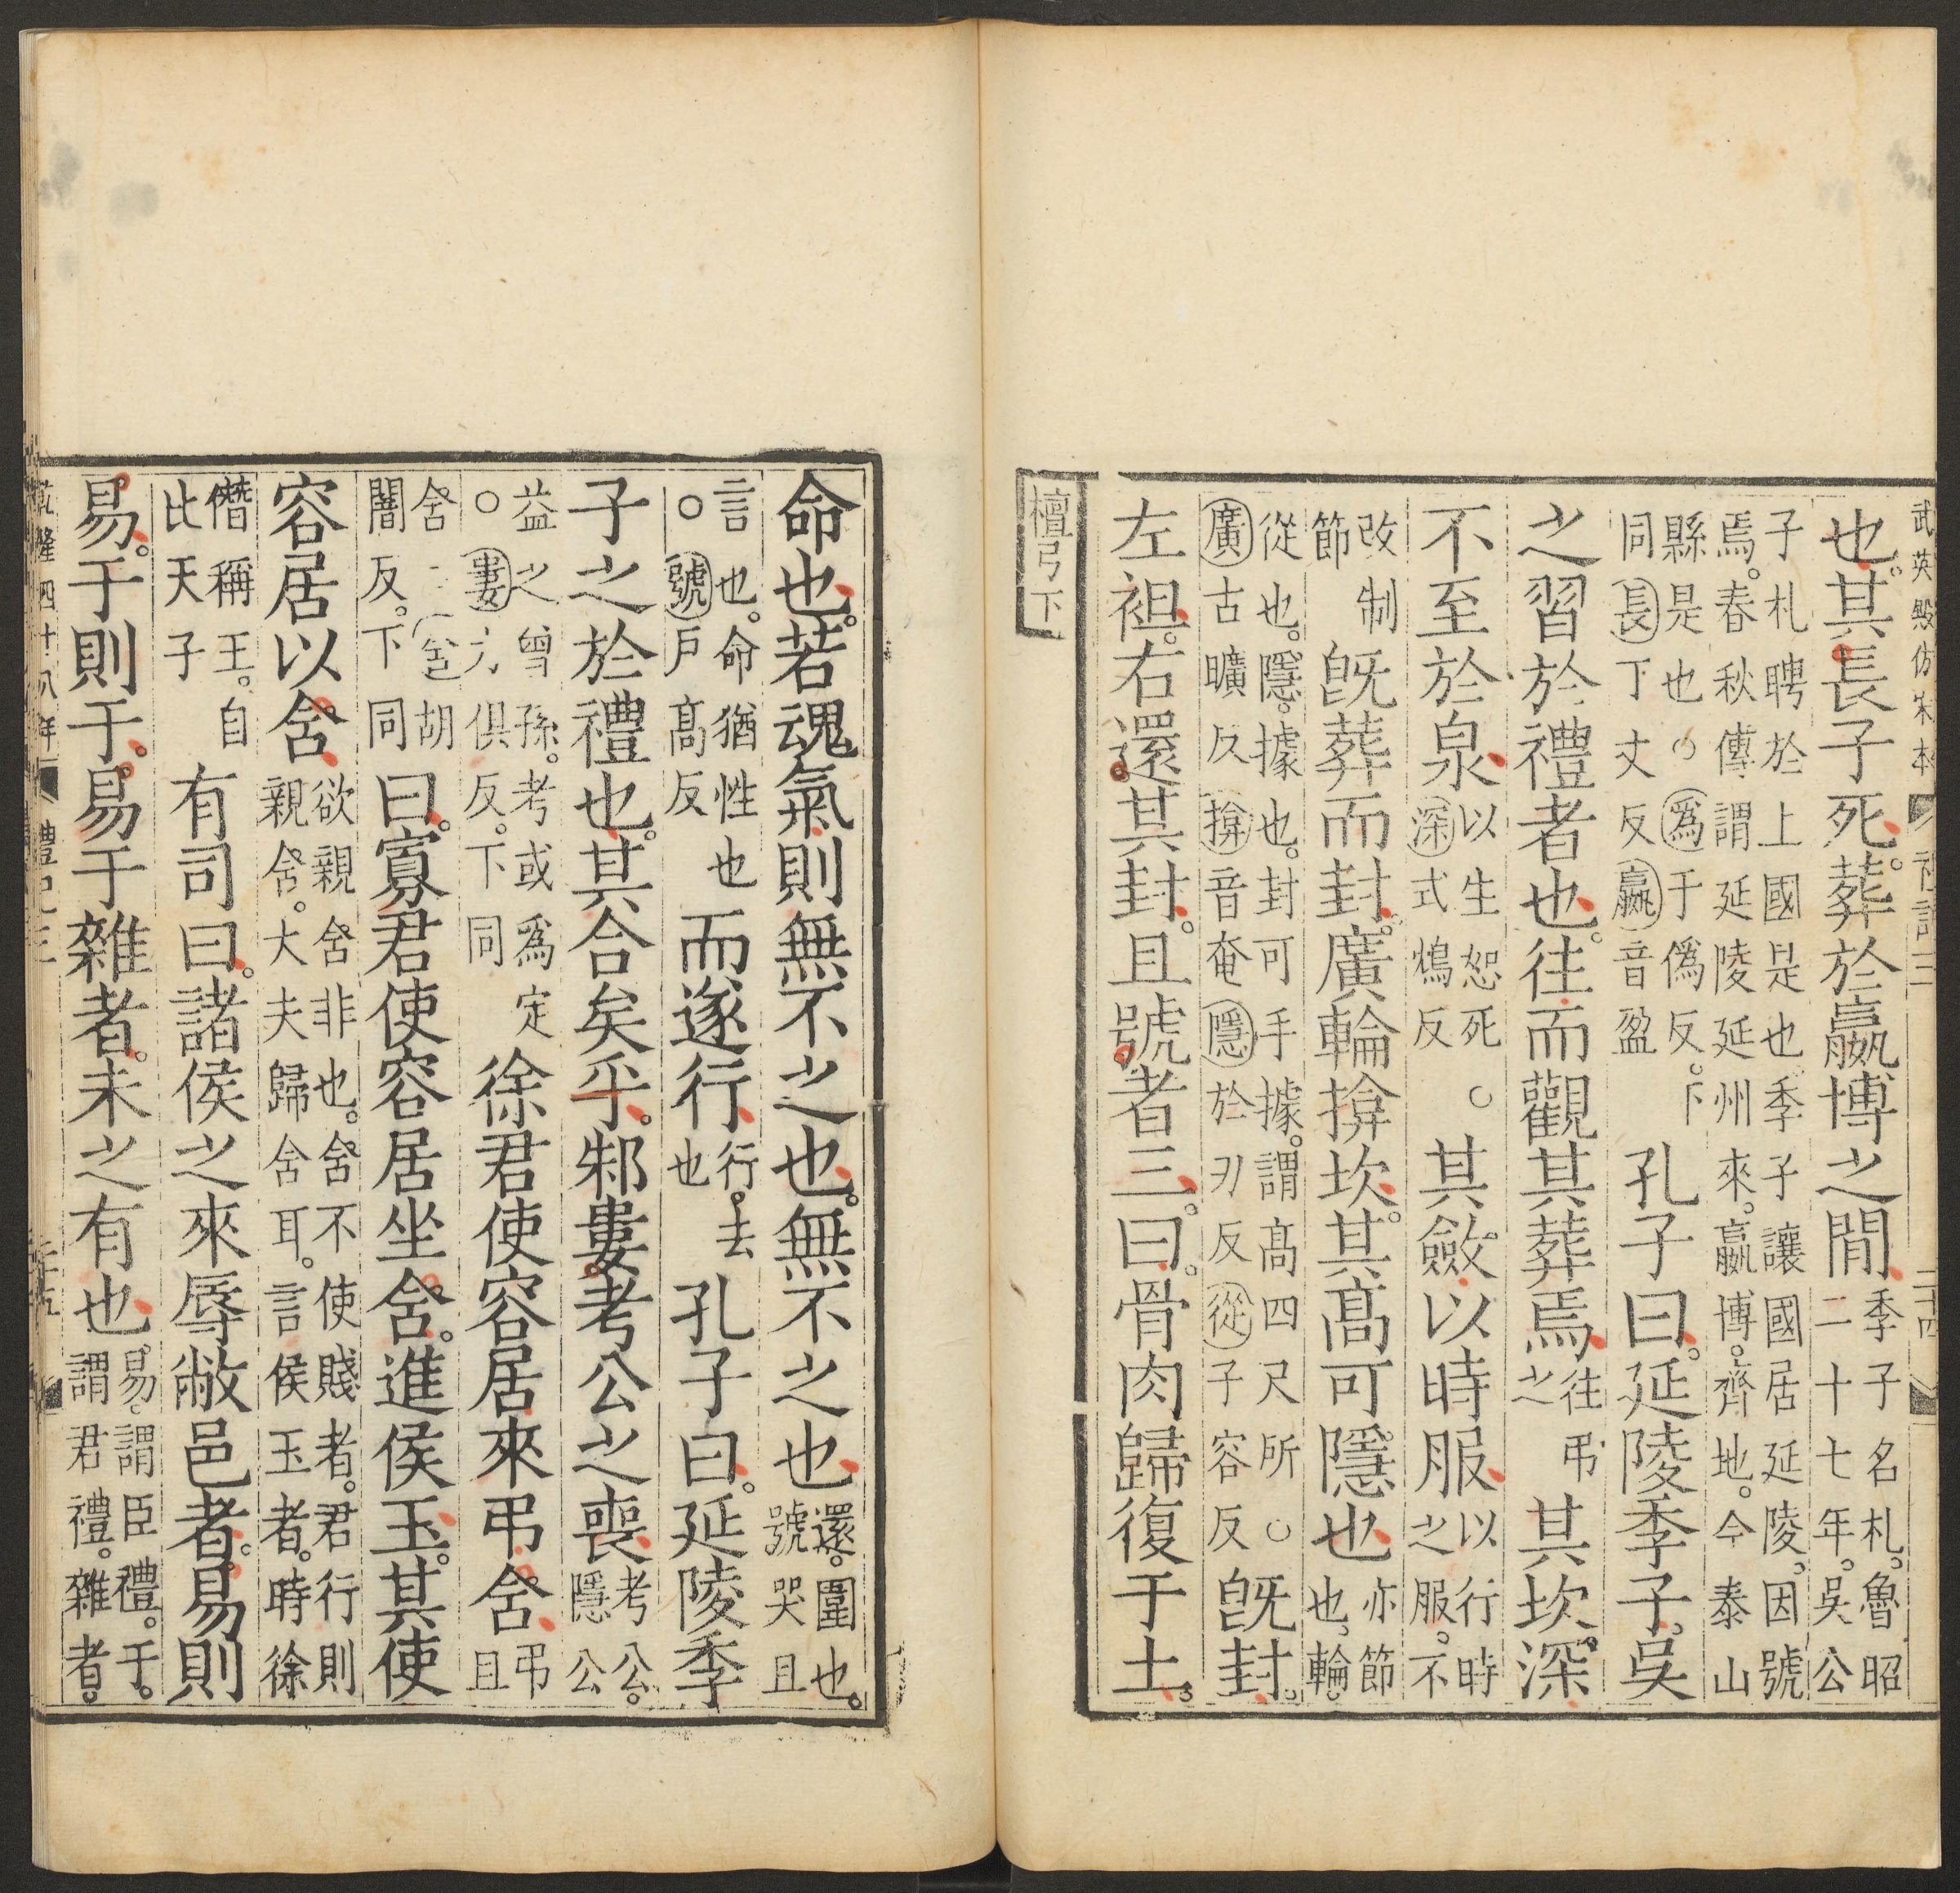 武英殿仿宋本 禮記三 二十四
也。其長子死。葬於嬴博之閒季子名札。魯昭二十七年。吳公
子札聘於上國是也。季子讓國居延陵。因號焉。春秋傳謂延陵延州來。嬴博。齊地。今泰山
縣是也○爲于僞反。下同長丁丈反嬴音盈孔子曰。延陵季子。吳
之習於禮者也。往而觀其葬焉往弔之其坎深
不至於泉以生恕死○深式鴆反其斂以時服以行時之服。不
改制節旣葬而封。廣輪揜坎。其髙可隱也亦節也。輪。
從也。隱。據也。封可手據。謂髙四尺所○廣古曠反揜音奄隱於刃反從子容反旣封。
左袒。右還其封。且號者三。曰。骨肉歸復于土。
檀弓下
命也。若魂氣則無不之也。無不之也還。圍也。號哭且
言也。命猶性也○號戶髙反而遂行行。去也孔子曰。延陵季
子之於禮也。其合矣乎。邾婁考公之喪考公。隱公
益之曾孫。考或爲定○婁力俱反。下同徐君使容居來弔含弔且
含○含胡闇反。下同曰。寡君使容居坐含。進侯玉。其使
容居以含欲親含非也。含不使賤者。君行則親含。大夫歸含耳。言侯玉者。時徐
僭稱王。自比天子有司曰。諸侯之來辱敝邑者。易則
易。于則于。易于雜者。未之有也。易。謂臣禮。于。謂君禮。雜者。
乾隆四十八年 禮記三 二十五